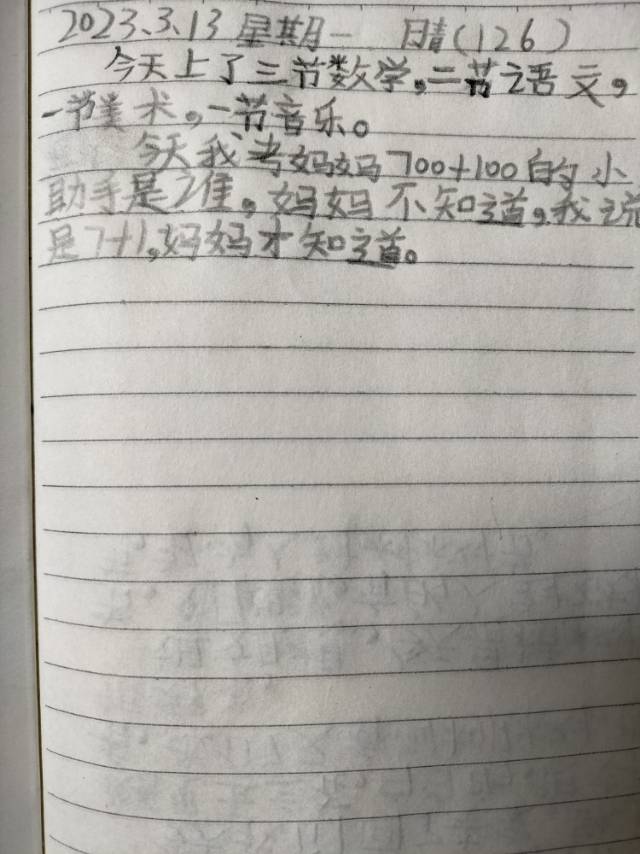 2023.3.13 星期一 晴(126)
今天上了三节数学,二节语文,
一节美术,一节音乐。
今天我考妈妈700+100的小
助手是谁,妈妈不知道,我说
是7+1,妈妈才知道。